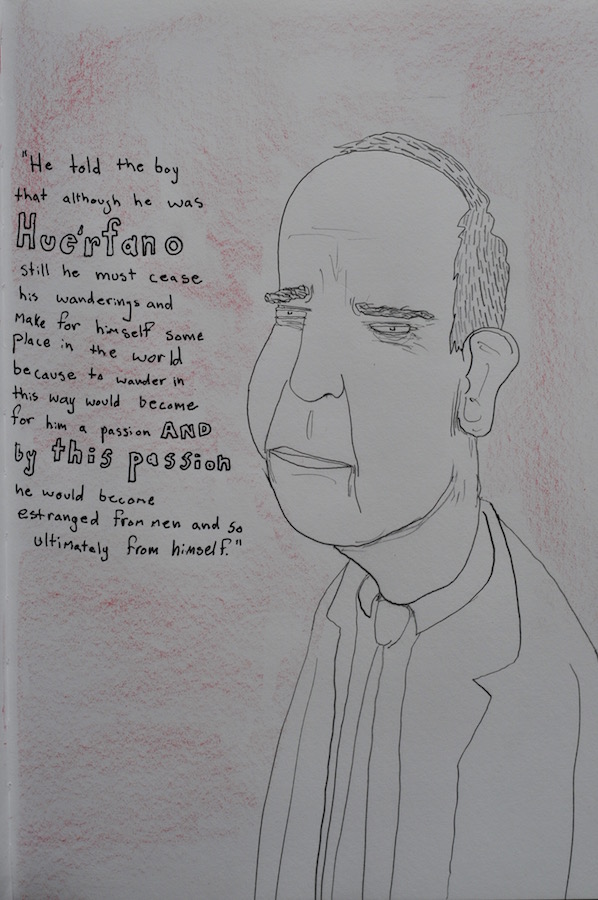 "He told the boy
that although he was
Huérfano
still he must cease
his wanderings and
Make for himself some
place in the world
because to wander in
this way would become
for him a passion AND
by this passion
he would become
estranged from men and so
ultimately from himself."